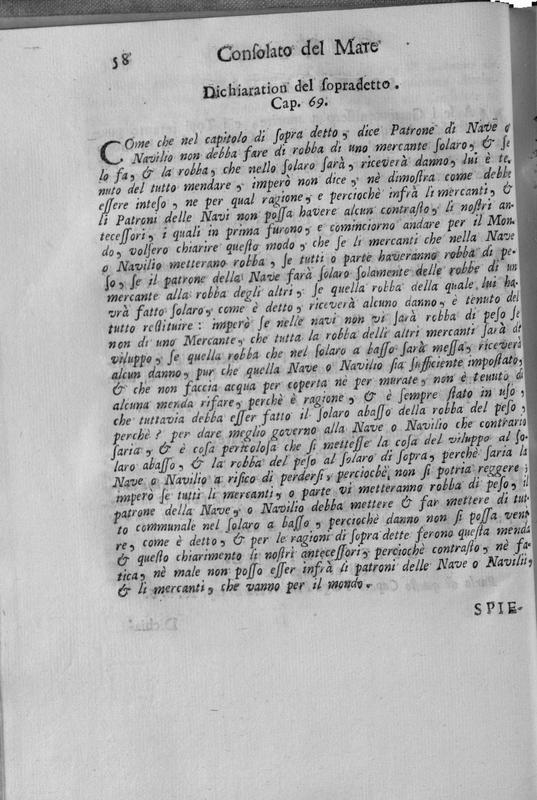 58 Conſolato del Mare
Dichiaration del ſopradetto.
Cap. 69.
COme che nel capitolo di ſopra detto, dice Patrone di Nave o
Navilio non debba fare di robba di uno mercante ſolaro, & ſe
lo fa, & la robba, che nello ſolaro ſarà, riceverà danno, lui è te-
nuto del tutto mendare, imperò non dice, nè dimoſtra come debbe
eſſere inteſo, ne per qual ragione, e perciochè infrà li mercanti, &
li Patroni delle Navi non poſſa havere alcun contraſto, li noſtri an-
teceſſori, i quali in prima furono, e cominciorno andare per il Mon-
do, volſero chiarire queſto modo, che ſe li mercanti che nella Nave
o Navilio metterano robba, ſe tutti o parte haveranno robba di pe-
ſo, ſe il patrone della Nave farà ſolaro ſolamente delle robbe di un
mercante alla robba degli altri, ſe quella robba della quale lui ha-
vrà fatto ſolaro, come è detto, riceverà alcuno danno, è tenuto del
tutto reſtituire: imperò ſe nelle navi non vi ſarà robba di peſo ſe
non di uno Mercante, che tutta la robba delli altri mercanti ſarà di
viluppo, ſe quella robba che nel ſolaro a baſſo ſarà meſſa, riceverà
alcun danno, pur che quella Nave o Navilio ſia ſufficiente impoſtato,
& che non faccia acqua per coperta nè per murate, non è tenuto di
alcuna menda rifare, perchè è ragione, & è ſempre ſtato in uſo,
che tuttavia debba eſſer fatto il ſolaro abaſſo della robba del peſo,
perchè? per dare meglio governo alla Nave o Navilio che contrario
ſaria, & è coſa pericoloſa che ſi metteſſe la coſa del viluppo al ſo-
laro abaſſo, & la robba del peſo al ſolaro di ſopra, perchè ſaria la
Nave o Navilio a riſico di perderſi, perciochè non ſi potria reggere;
imperò ſe tutti li mercanti, o parte vi metteranno robba di peſo, il
patrone della Nave, o Navilio debba mettere & far mettere di tut-
to communale nel ſolaro a baſſo, perciochè danno non ſi poſſa veni-
re, come è detto, & per le ragioni di ſopra dette ferono queſta menda
& queſto chiarimento li noſtri anteceſſori, perciochè contraſto, nè fa-
tica, nè male non poſſo eſſer infrà li patroni delle Nave o Navilii,
& li mercanti, che vanno per il mondo.
SPIE-